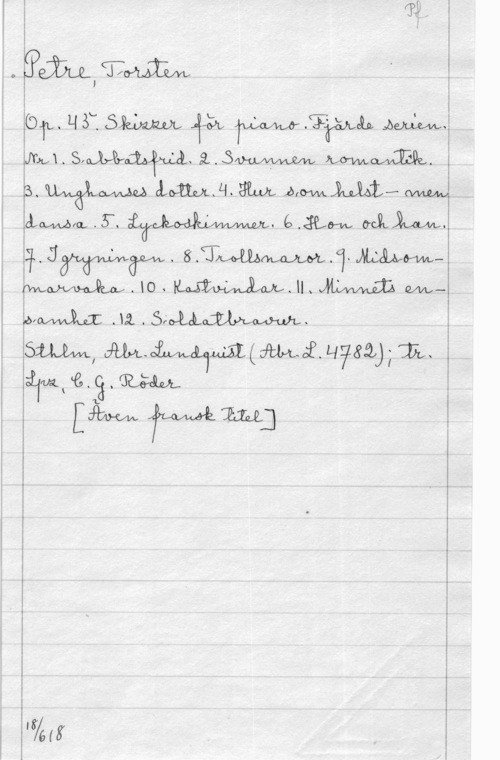 Pf
Petre, Torsten
Op. 45. Skizzer för piano. Fjärde serien.
Nr 1. Sabbatsfrid. 2. Svunnen romantik.
3. Unghanses dotter. 4. Hur som helst – men
dansa. 5. Lyckoskimmer. 6. Hon och han.
7. I gryningen. 8. Trollsnaror. 9. Midsom-
marvaka. 10. Kastvindar. 11. Minnets en-
samhet. 12. Soldatbravur.
Sthlm, Abr. Lundquist (Abr. L. 4782); tr.
Lpz, C. G. Röder
[Även fransk titel]
18/6 18